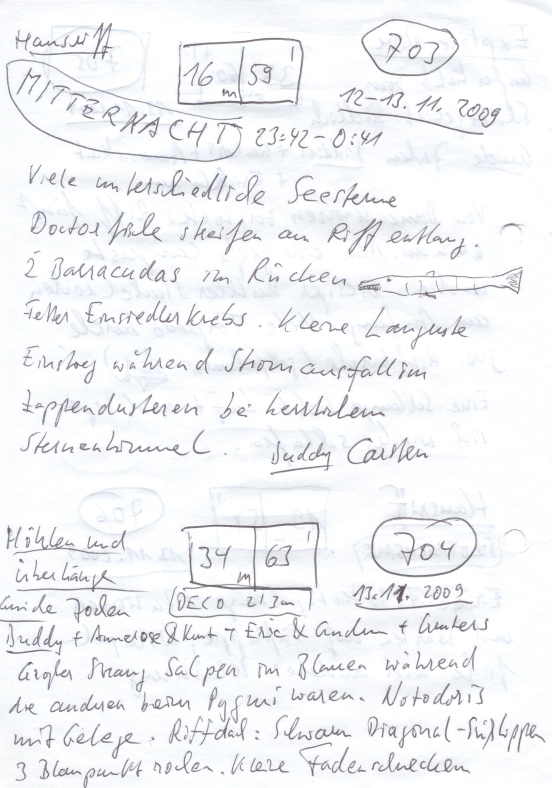 Hausriff
16 m 59
703
MITTERNACHT
12-13.11.2009
23:42-0:41
Viele unterschiedliche Seesterne
Doctorfische streifen am Riff entlang.
2 Barracudas im Rücken
Fetter Einsiedlerkrebs. Kleine Languste
Einstieg während Stromausfall im
zappendusteren bei herrlichem
Sternenhimmel. Buddy Carsten
Höhlen und
überhänge
34 m 63
704
Guide Joden
DECO 2/3m
13.11.2009
Buddy + Annerose & Kurt + Eric & andere + Gunters
Großer Strang Salpen im Blauen während
die anderen beim Pygmi waren. Notodoris
mit Gelege. Riffdach: Schwarm Diagonal-Süßlippen
3 Blaupunktrochen. Kleine Fadenschnecken